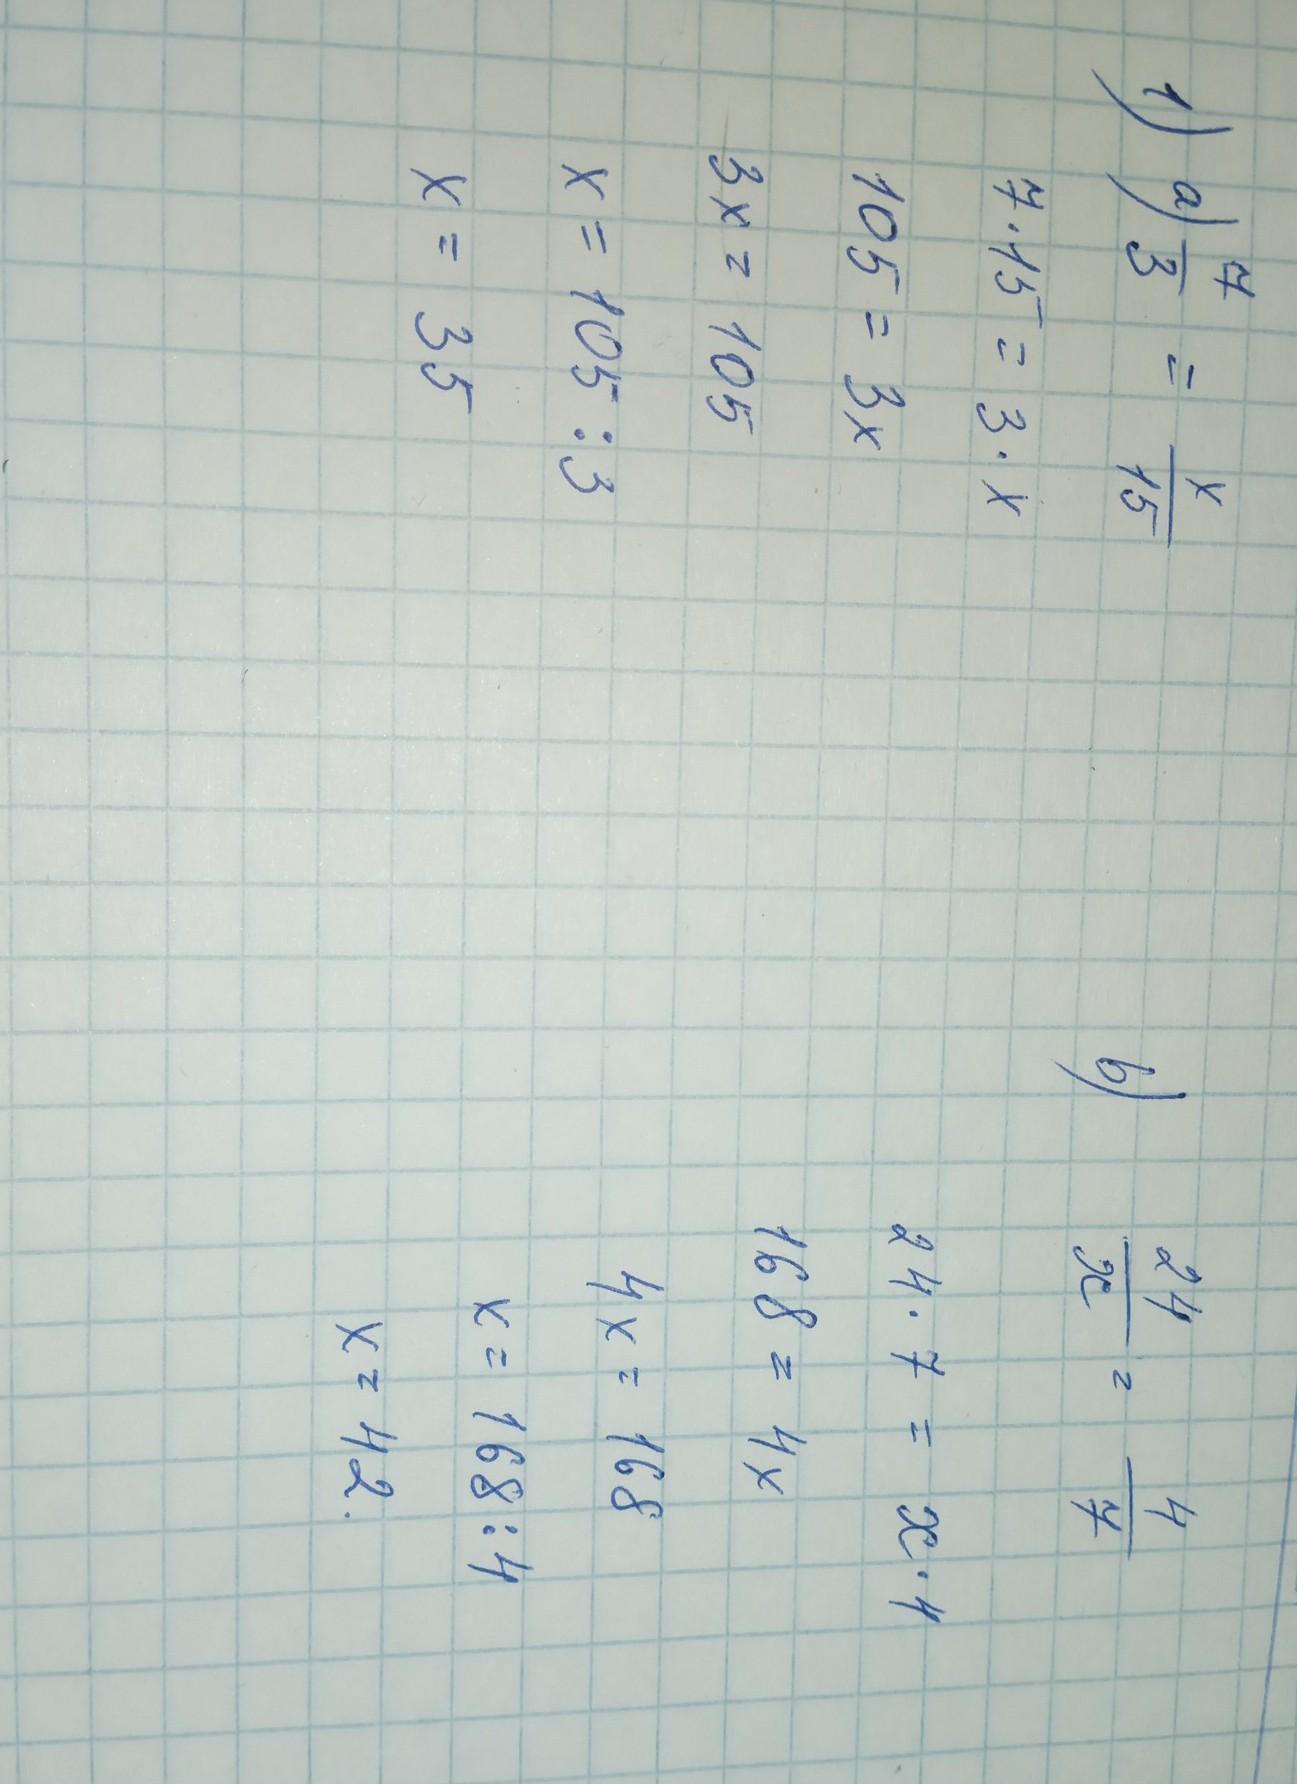 1) a) 7/3 = x/15
7·15 = 3·x
105 = 3x
3x = 105
x = 105:3
x = 35
b) 24/x = 4/7
24·7 = x·4
168 = 4x
4x = 168
x = 168:4
x = 42.